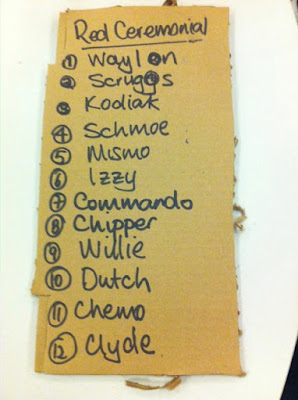 Red Ceremonial
① Waylon
② Scruggs
③ Kodiak
④ Schmoe
⑤ Mismo
⑥ Izzy
⑦ Commando
⑧ Chipper
⑨ Willie
⑩ Dutch
⑪ Chemo
⑫ Clyde